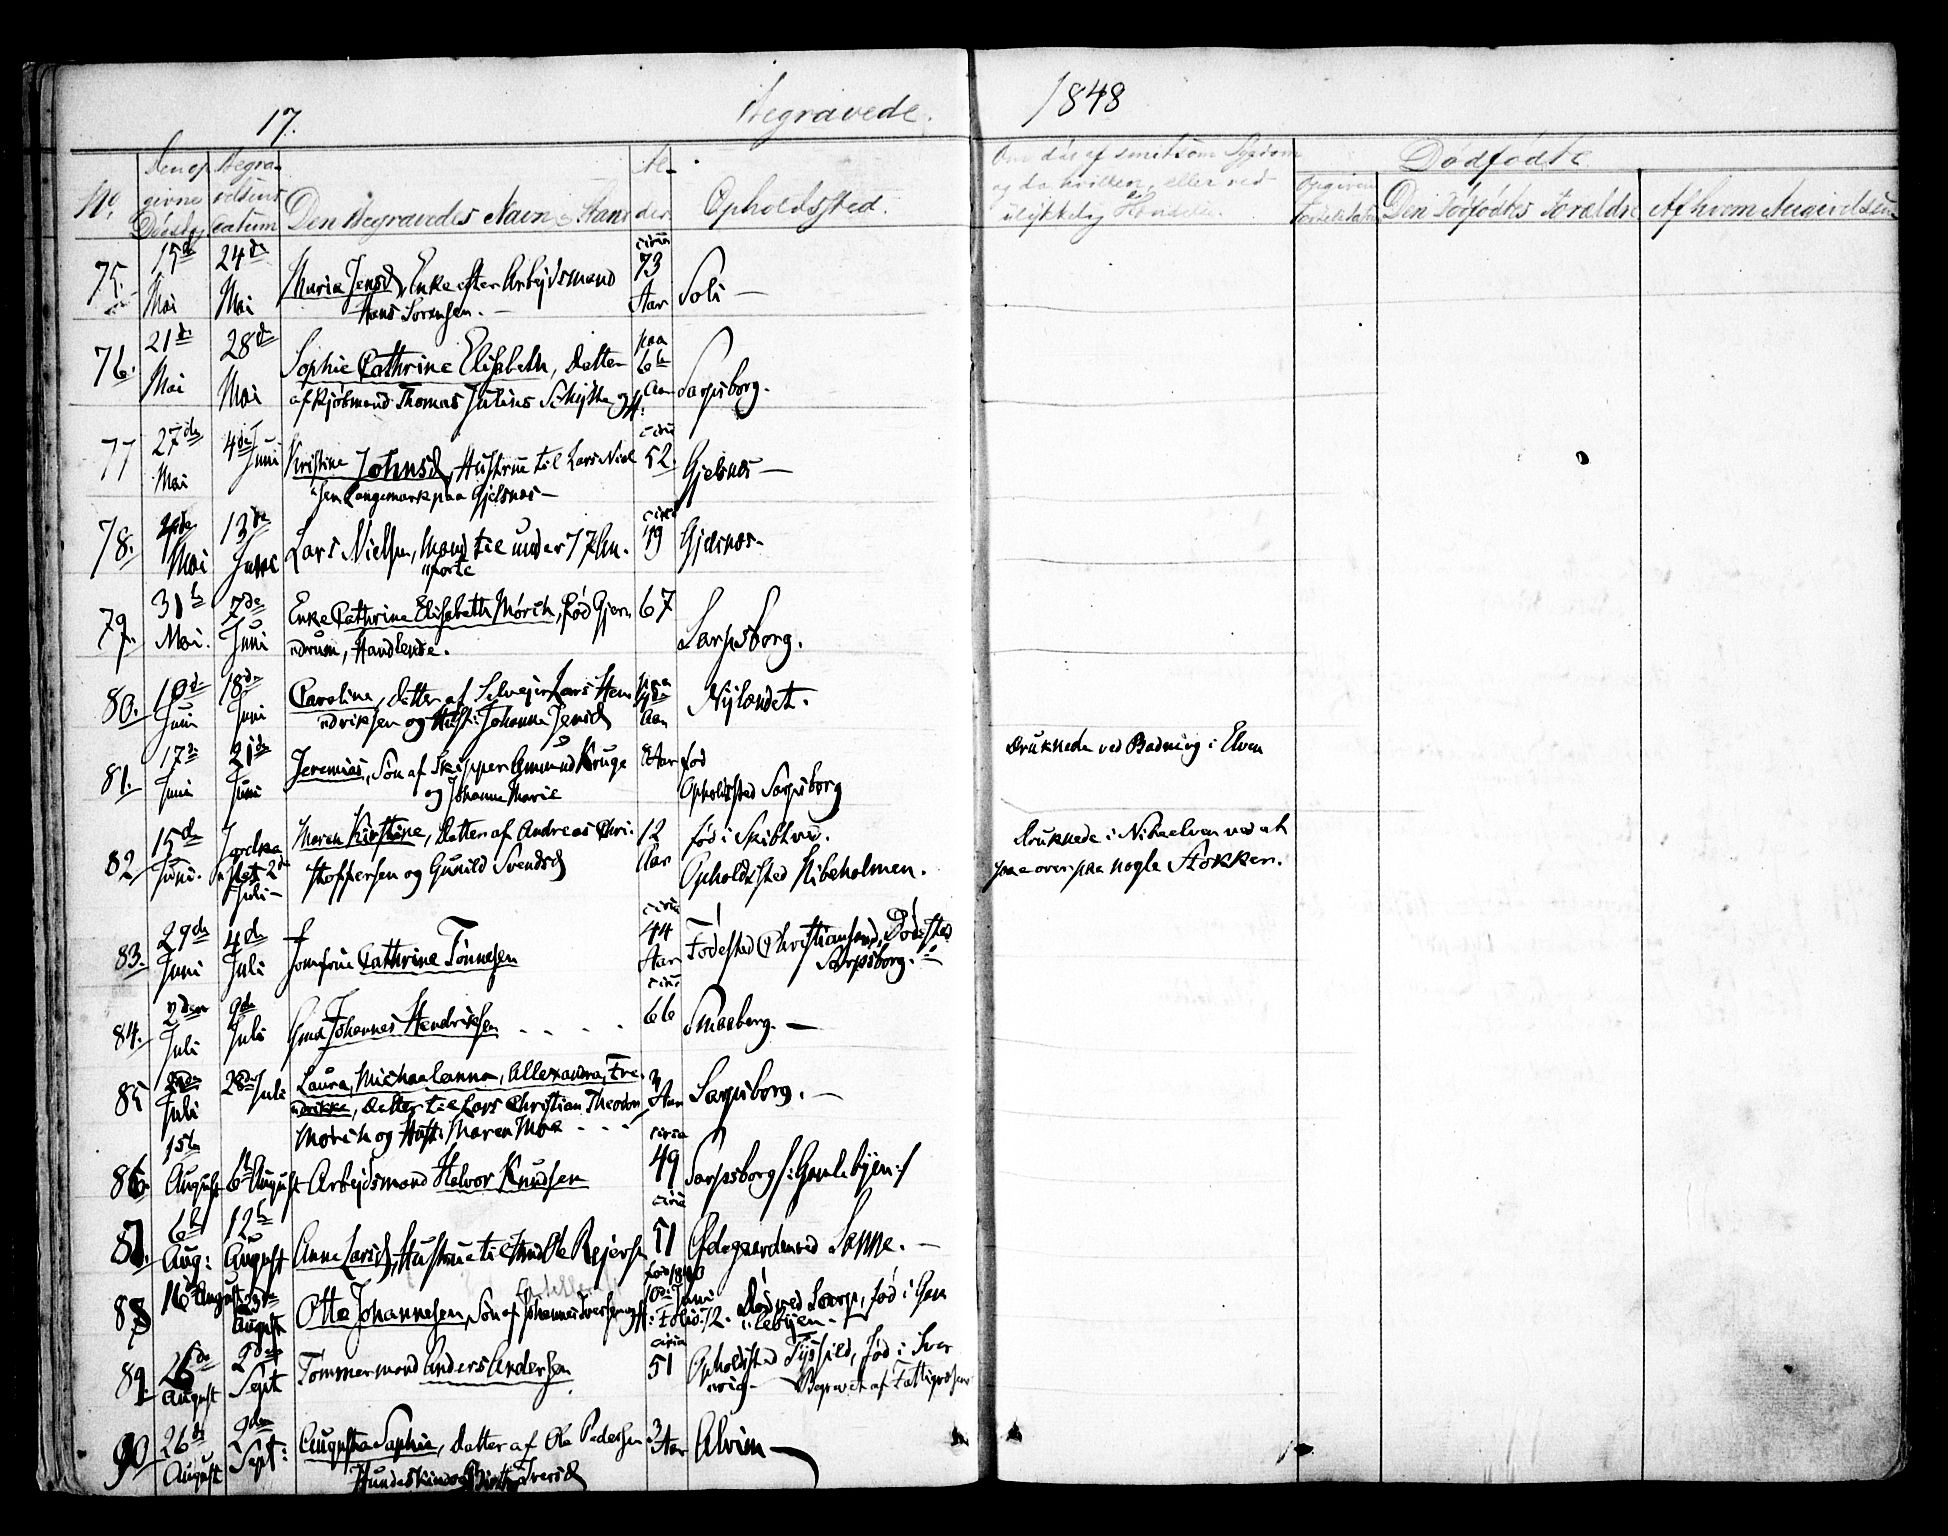 17.
Begravede.
1848
No.
Den op
givne
Dødsdag
Begra-
velsens
datum
Den Begravedes Navn, Stand
Al-
der
Opholdssted.
Om død af smitsom Sygdom
og da hvilken, eller ved
ulykkelig Hændelse.
Dødfødte
Den Dødfødtes Forældre
Af hvem Angivelsen
75.
15de Mai
24de Mai
Maria Jensd, Enke efter Arbejdsmand
Hans Sørensen. -
circa 73 Aar
Soli -
76.
21de Mai
28de Mai
Sophie Cathrine Elisabeth, Datter
af Kjøbmand Thomas Julius
paa 6te Aar
Sarpsborg.
77
27de Mai
4de Juni
Kristine Johnsd, Hustrue til Lars Niel
sen Langemark paa Gjelsnæs -
circa 52.
Gjelsnæs -
78.
Mai
13de Juni
Lars Nielsen, Mand til under 77
anførte
circa 49
Gjelsnæs -
79.
31te Mai.
7de Juni
Enke Cathrine Elisabeth Mørch, fød Gjern
drum, Handlende.
67
Sarpsborg.
80.
10de Juni
18de Juni
Caroline, datter af Selvejer Lars Hen
driksen og Hust: Johanne Jensd
paa Aar
Nylandet.
81.
17de Juni
21de Juni
Jeremias, Søn af Skipper Amund Kruge
og Johanne Marie
8 Aar
fød
Opholdssted Sarpsborg
Druknede ved Badning i Elven
82
15de Juni.
Jordkastet 2de Juli -
Maren Kirstine, Datter af Andreas Chri-
stoffersen og Gunild Svendsd
12 Aar
fød i Skibtved.
Opholdssted Kibeholmen.
druknede i Nibaelven ved at
gaae over paa nogle Stokker.
83.
29de Juni
4de Juli
Jomfrue Cathrine Tønnesen
circa 44 Aar
Fødested Christiansand, Dødssted
Sarpsborg. -
84.
2den Juli
9de Juli
Gmd Johannes Hendriksen - - - -
circa 66
Smaaberg. -
85
Juli
28de Juli
Laura, Michaelanna, Allexandra, Fre-
drikke, Datter til Lars Christian Theodor
Mørch og Hust: Maren Moe - - -
3 Aar
Sarpsborg. -
86.
15te
August
August
Arbejdsmand Halvor Knudsen
circa 49
Sarpsborg /: Gamlebyen :/
87.
6te Aug:
12te August
Anne Larsd, Hustrue til Ole Rejersen
circa 51
Ødegaarden ved Sanne. -
88
16de August
23de August
Otto Johannesen, Søn af Johannes Iversen
10de Juni
: Folio: 12.
Død ved Sarp, fød i Gam
lebyen -
89.
26de August
2den Sept
Tømmermand Anders Andersen
circa 51
Opholdssted Tyskild, fød i Sver
rig - Begravet af Fattigvæsen
90
26de August
9de Sept:
Augusta Sophie, Datter af Ole Pedersen
Hundeskind Iversd
3 Aar
Alvim -